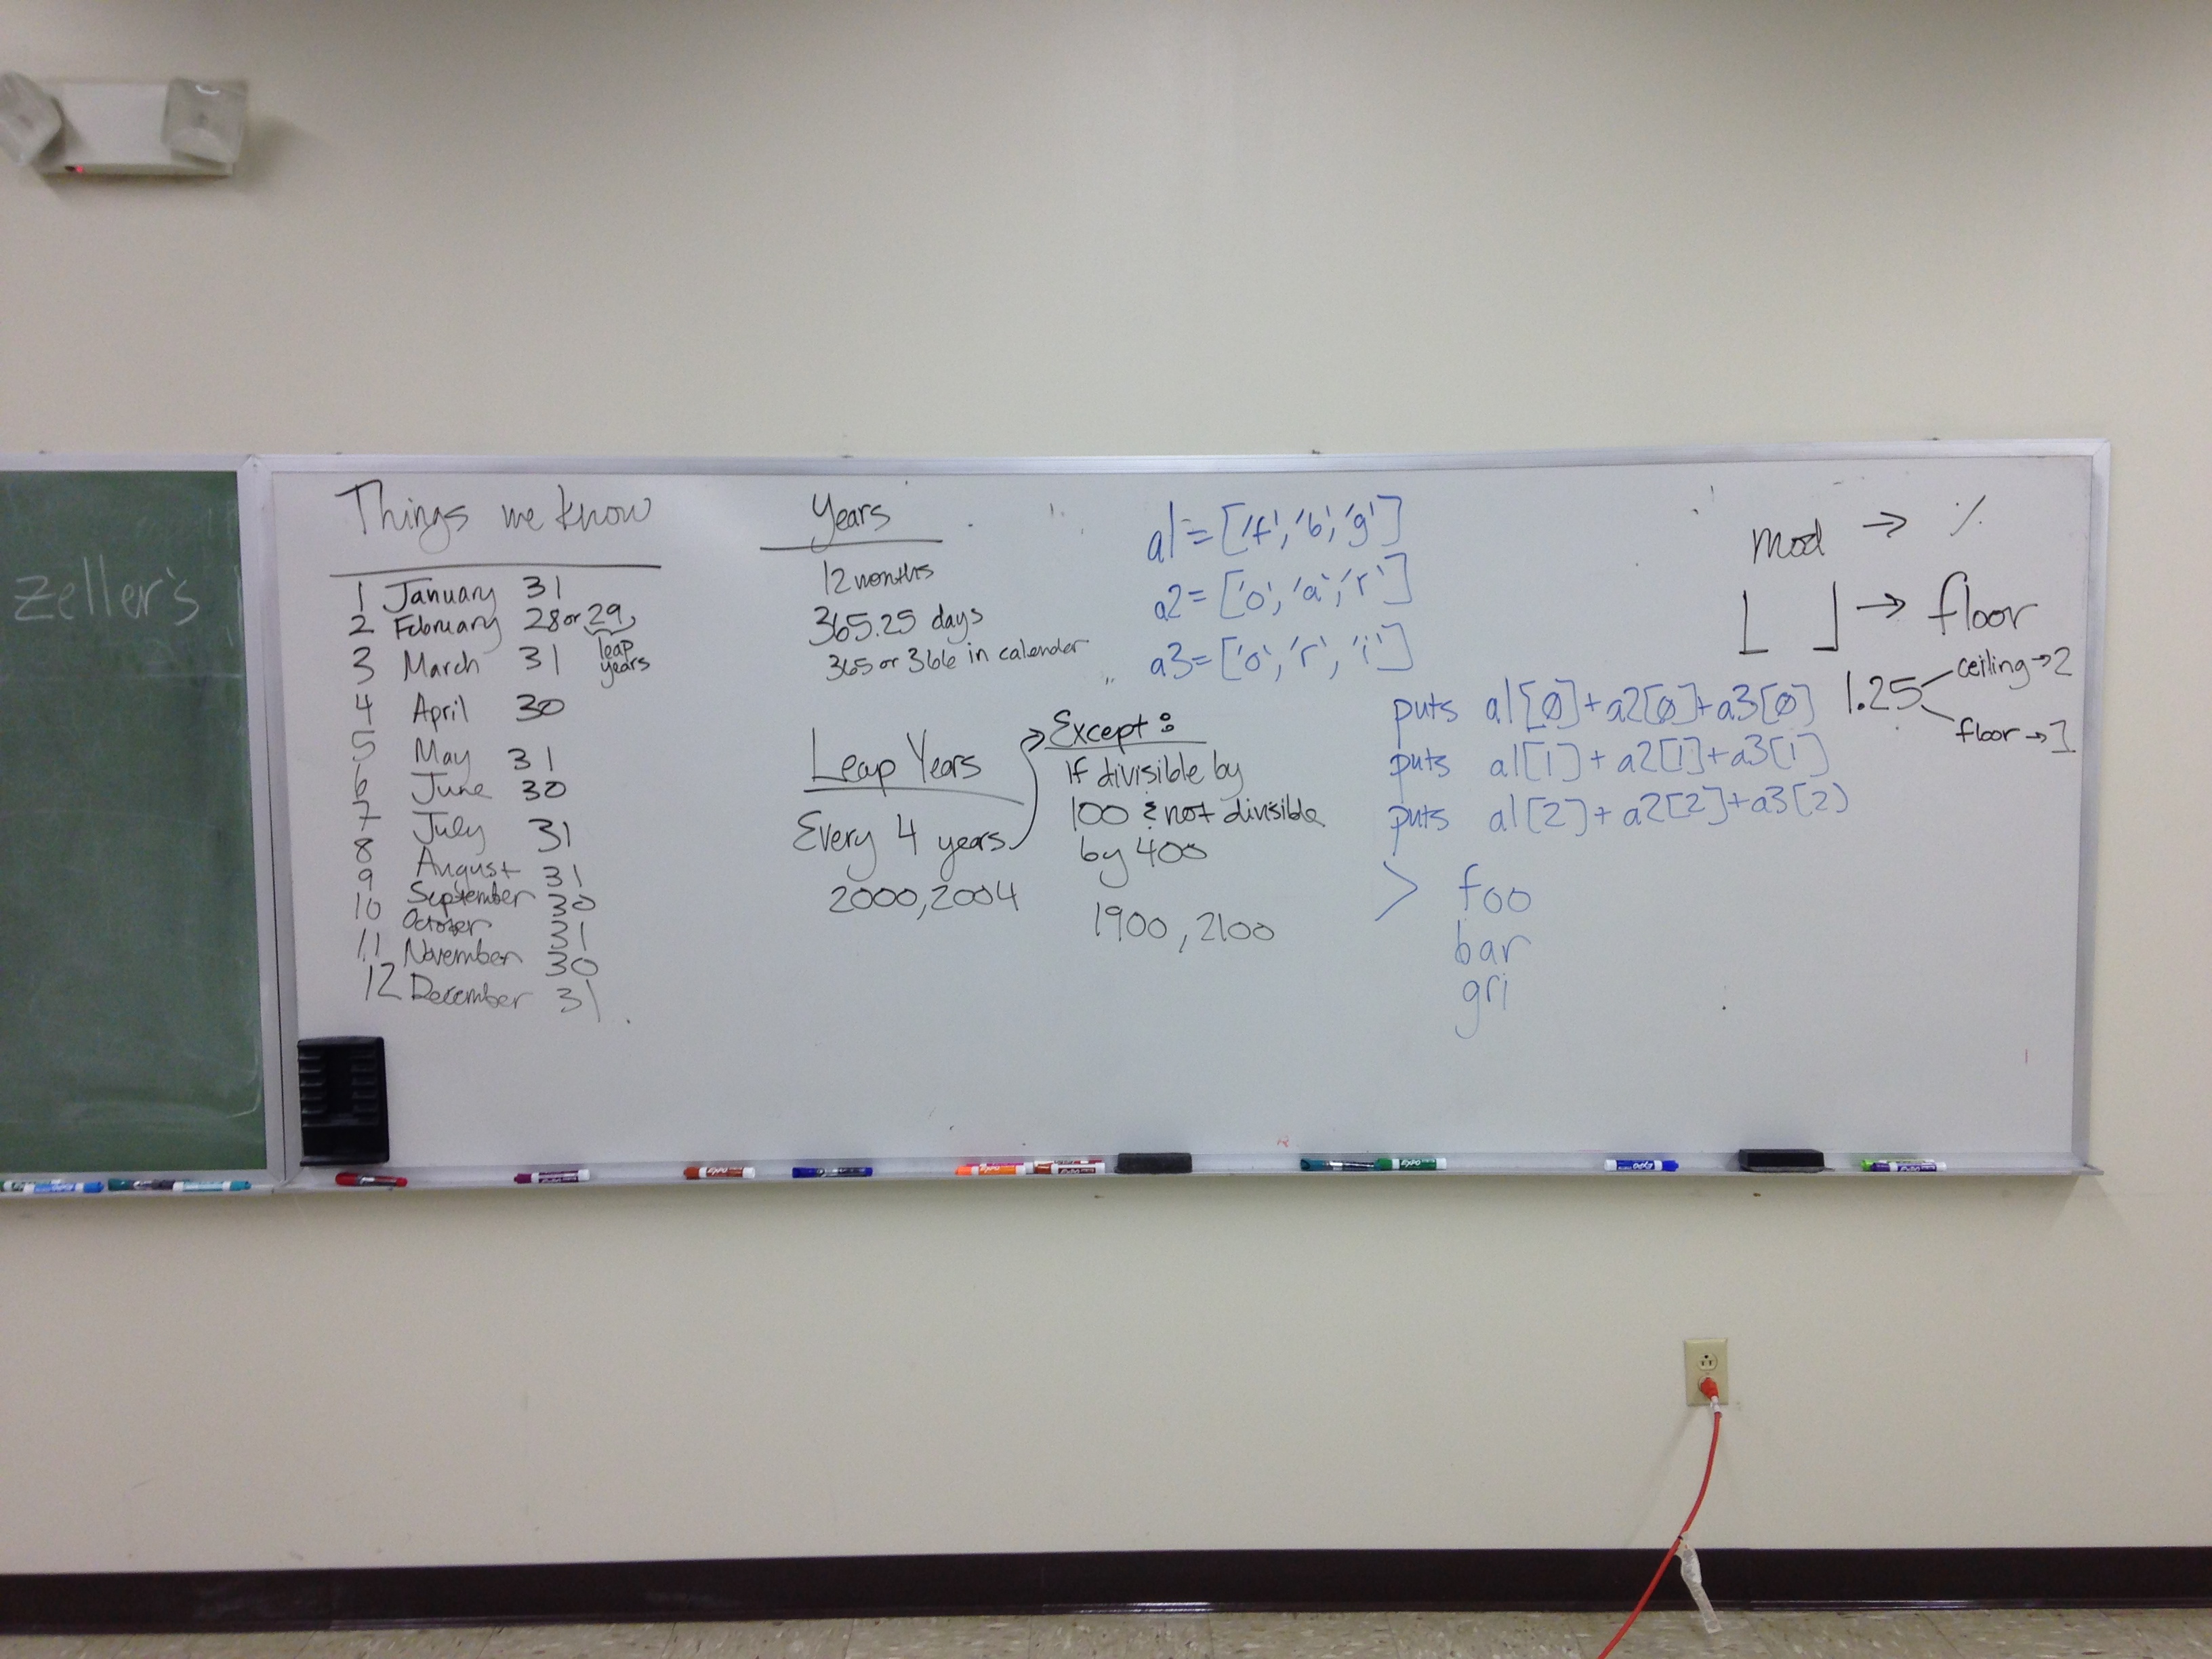 zeller's
Things we know
1 January 31
2 February 28 or 29
leap
years
3 March 31
4 April 30
5 May 31
6 June 30
7 July 31
8 August 31
9 September 30
10 October 31
11 November 30
12 December 31
Years
12 months
365.25 days
365 or 366 in calender
Leap Years
Every 4 years
2000, 2004
Except:
If divisible by
100 & not divisible
by 400
1900, 2100
a1=['f','b','g']
a2=['o','a','r']
a3=['o','r','i']
puts a1[0]+a2[0]+a3[0]
puts a1[1]+a2[1]+a3[1]
puts a1[2]+a2[2]+a3[2]
> foo
bar
gri
mod → %
⌊ ⌋ → floor
1.25
ceiling → 2
floor → 1
EXPO
EXPO
EXPO
EXPO